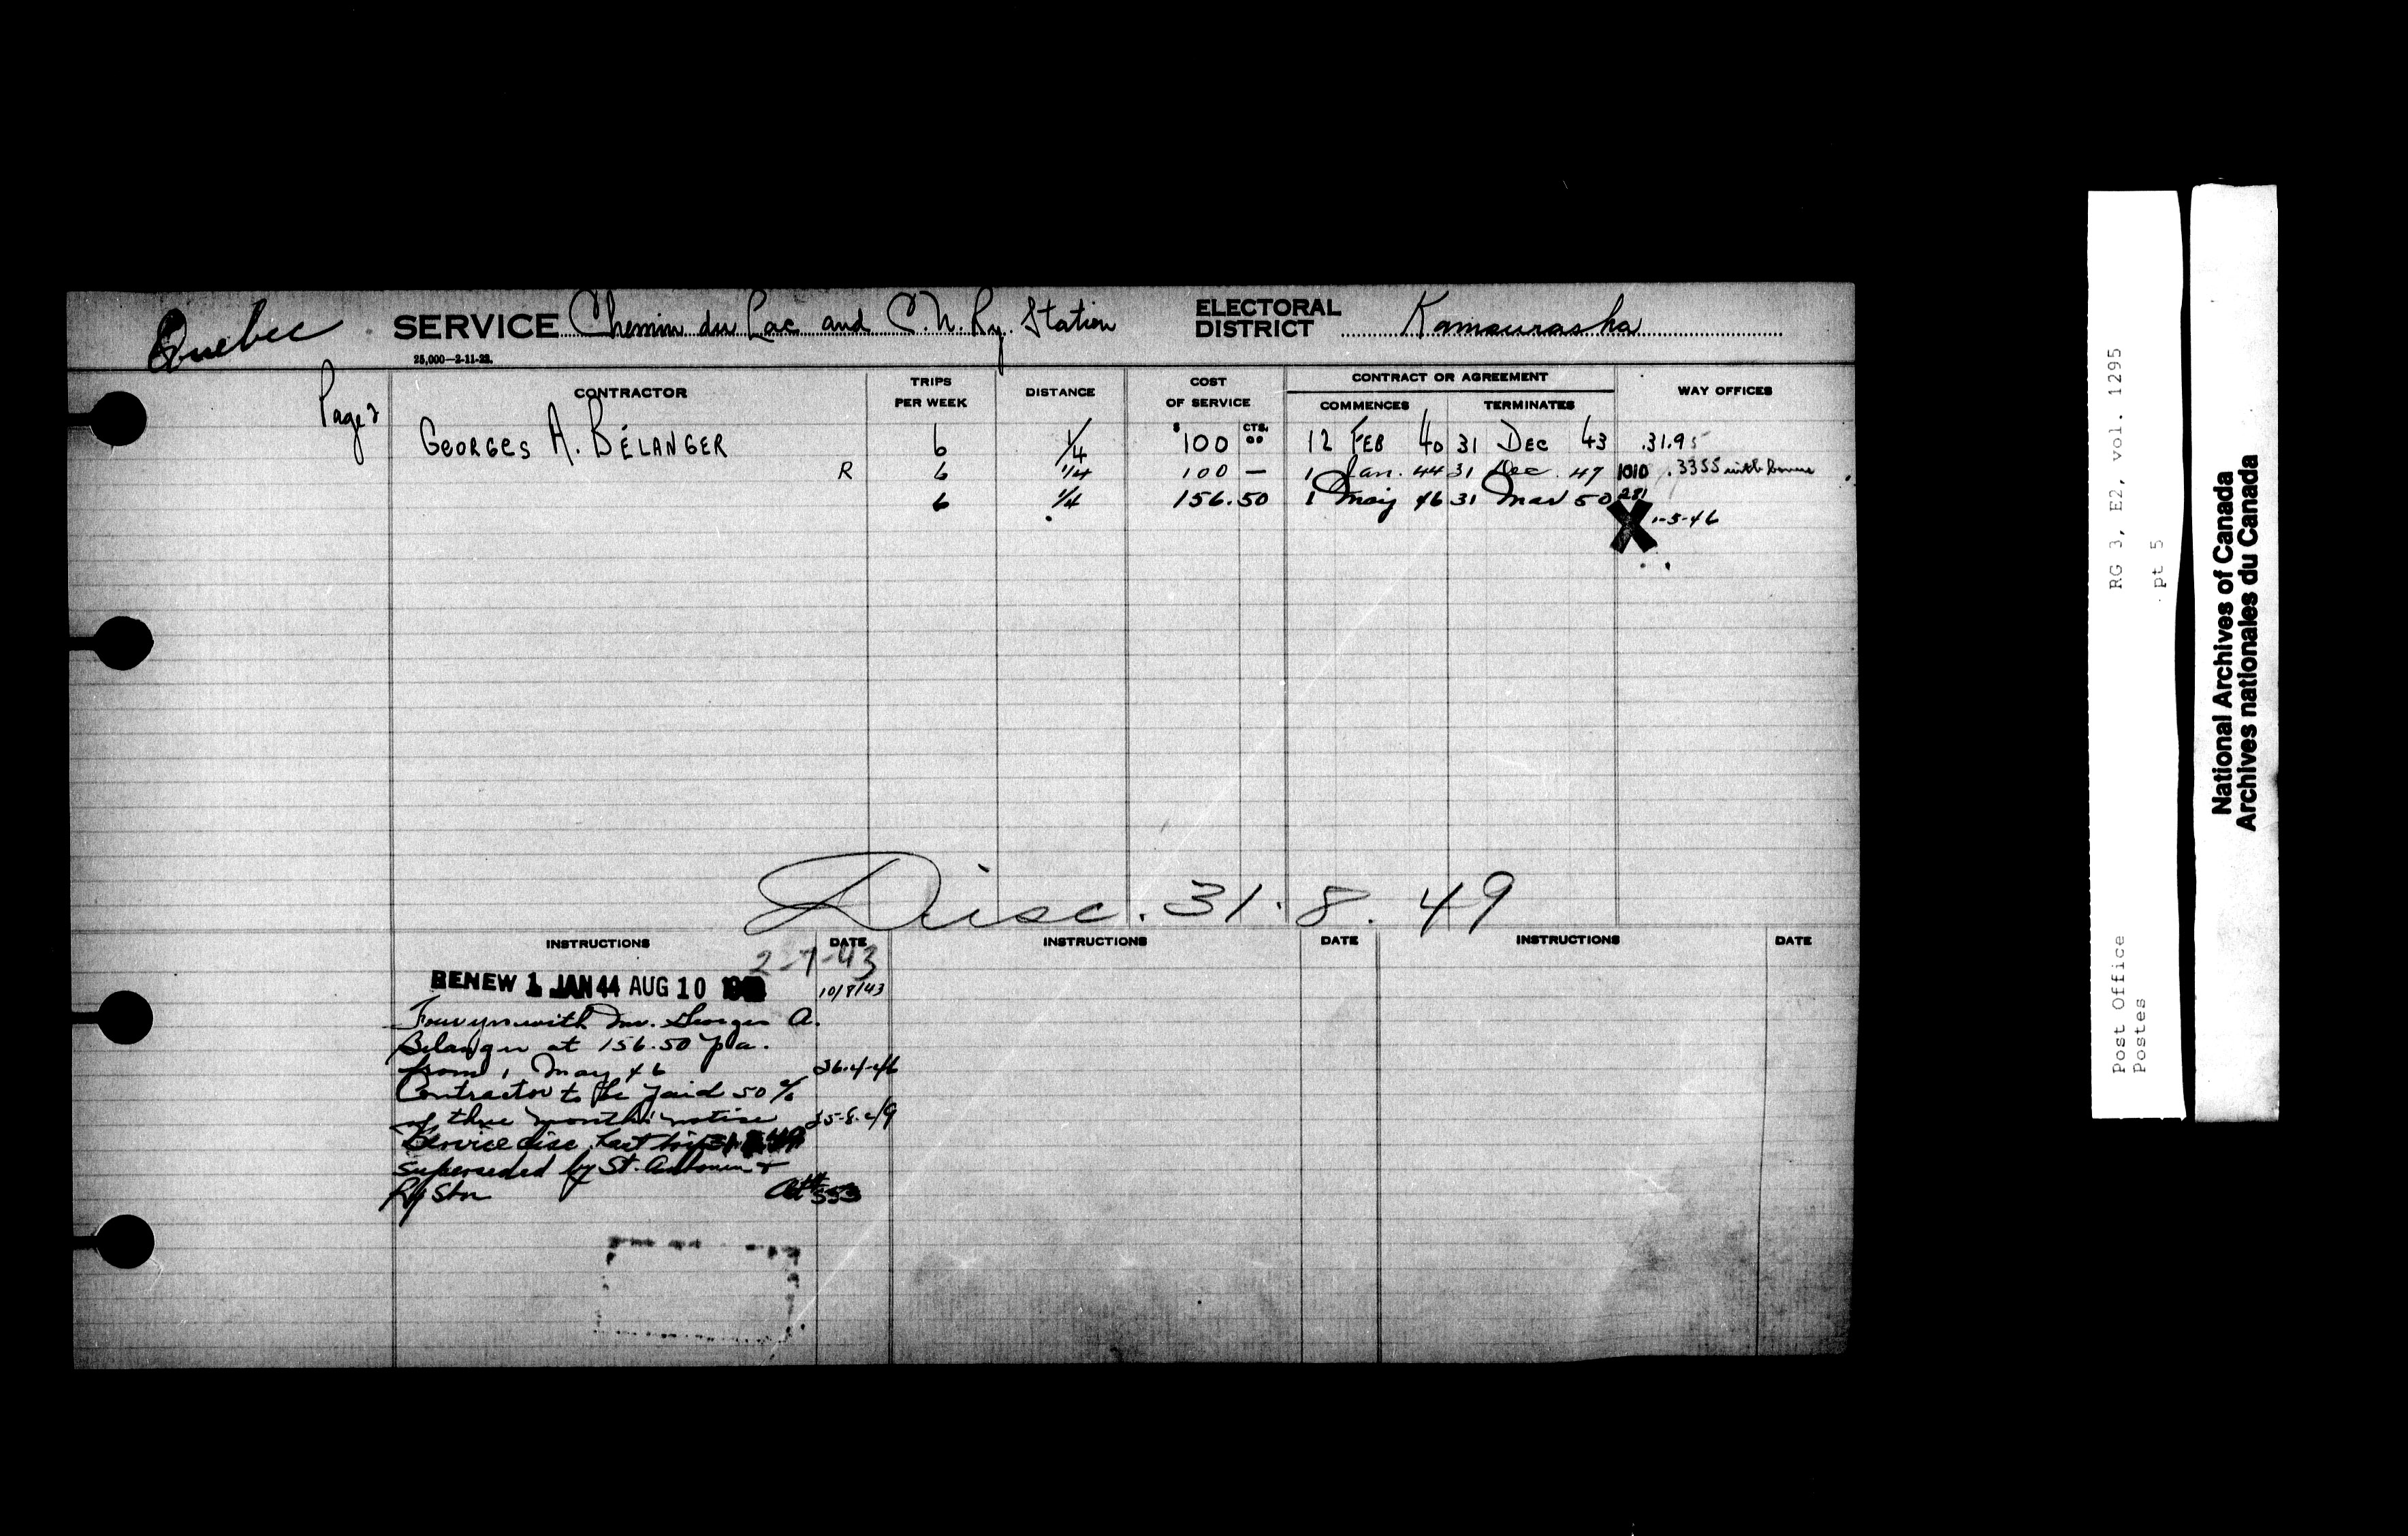 Quebec SERVICE Chemin du Lac and C.N. Ry. Station ELECTORAL DISTRICT Kamouraska
25,000—2-11-23.
Page 2
CONTRACTOR TRIPS PER WEEK DISTANCE COST OF SERVICE CONTRACT OR AGREEMENT COMMENCES TERMINATES WAY OFFICES
GEORGES A. BÉLANGER 6 1/4 $100 CTS. 00 12 FEB 40 31 DEC 43 .31.95
R 6 1/4 100 — 1 Jan. 44 31 Dec. 47 1010 .3355 with bonus
6 1/4 156.50 1 May 46 31 Mar 50 281
X 1-5-46
Disc. 31.8.49
INSTRUCTIONS DATE INSTRUCTIONS DATE INSTRUCTIONS DATE
2-7-43
RENEW 1 JAN 44 AUG 10 10/8/43
Four yrs with Mr. Georges A.
Belanger at 156.50 p.a.
from 1 May 46 26-4-46
Contractor to be paid 50%
of three months' notice 25-8-49
Service disc. last trip 31
superseded by St. Antonin &
Ry Stn 553
Post Office RG 3, E2, vol. 1295
Postes pt 5
National Archives of Canada
Archives nationales du Canada